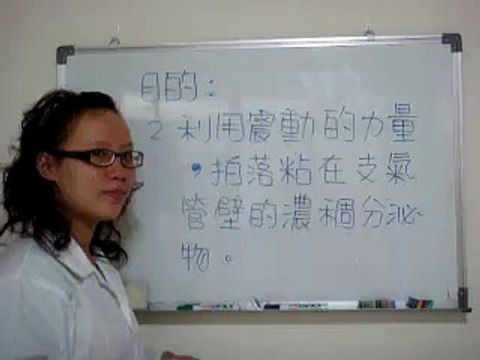 目的：
2 利用震動的力量
，拍落粘在支氣
管壁的濃稠分泌
物。